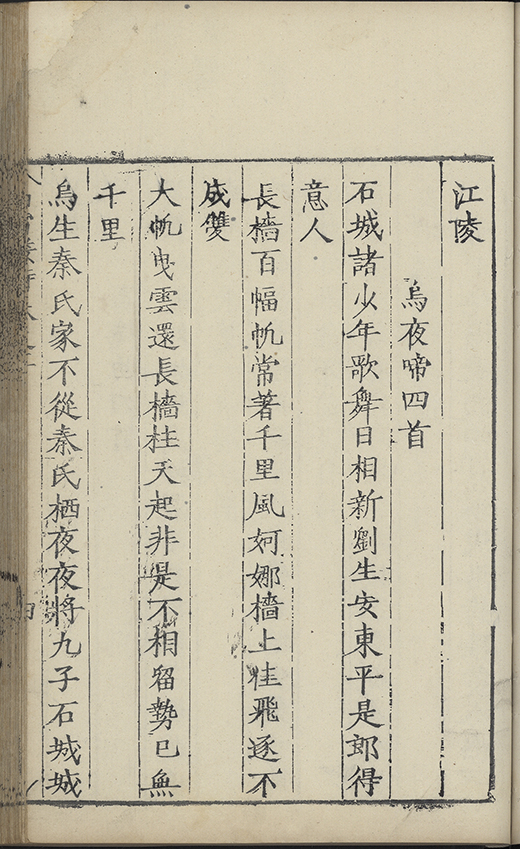 江陵
烏夜啼四首
石城諸少年歌舞日相新劉生安東平是郎得
意人
長檣百幅帆常著千里風婀娜檣上桂飛逐不
成雙
大帆曳雲還長檣柱天起非是不相留勢已無
千里
烏生秦氏家不從秦氏栖夜夜將九子石城城